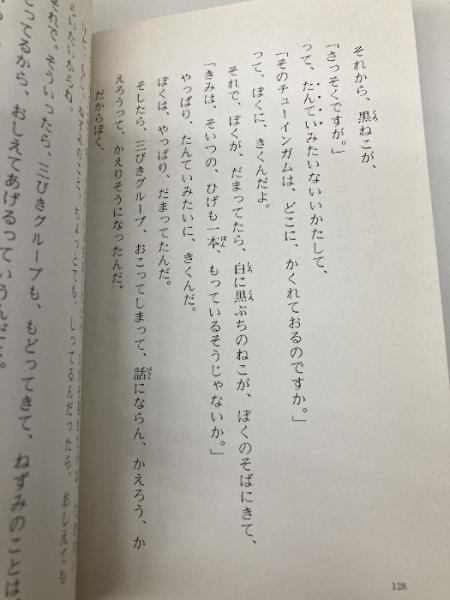 それから、黒ねこが、
「さっそくですが。」
って、たんていみたいないいかたして、
「そのチューインガムは、どこに、かくれておるのですか。」
って、ぼくに、きくんだよ。
それで、ぼくが、だまってたら、白に黒ぶちのねこが、ぼくのそばにきて、
「きみは、そいつの、ひげも一本、もっているそうじゃないか。」
やっぱり、たんていみたいに、きくんだ。
ぼくは、やっぱり、だまってたんだ。
そしたら、三びきグループ、おこってしまって、話にならん、かえろう、か
えろうって、かえりそうになったんだ。
だからぼく、
128
ちょっとでも しってるんだったら、おしえても
それで、そういったら、三びきグループも、もどってきて、ねずみのことは
ってるから、おしえてあげるっていうんだよ。